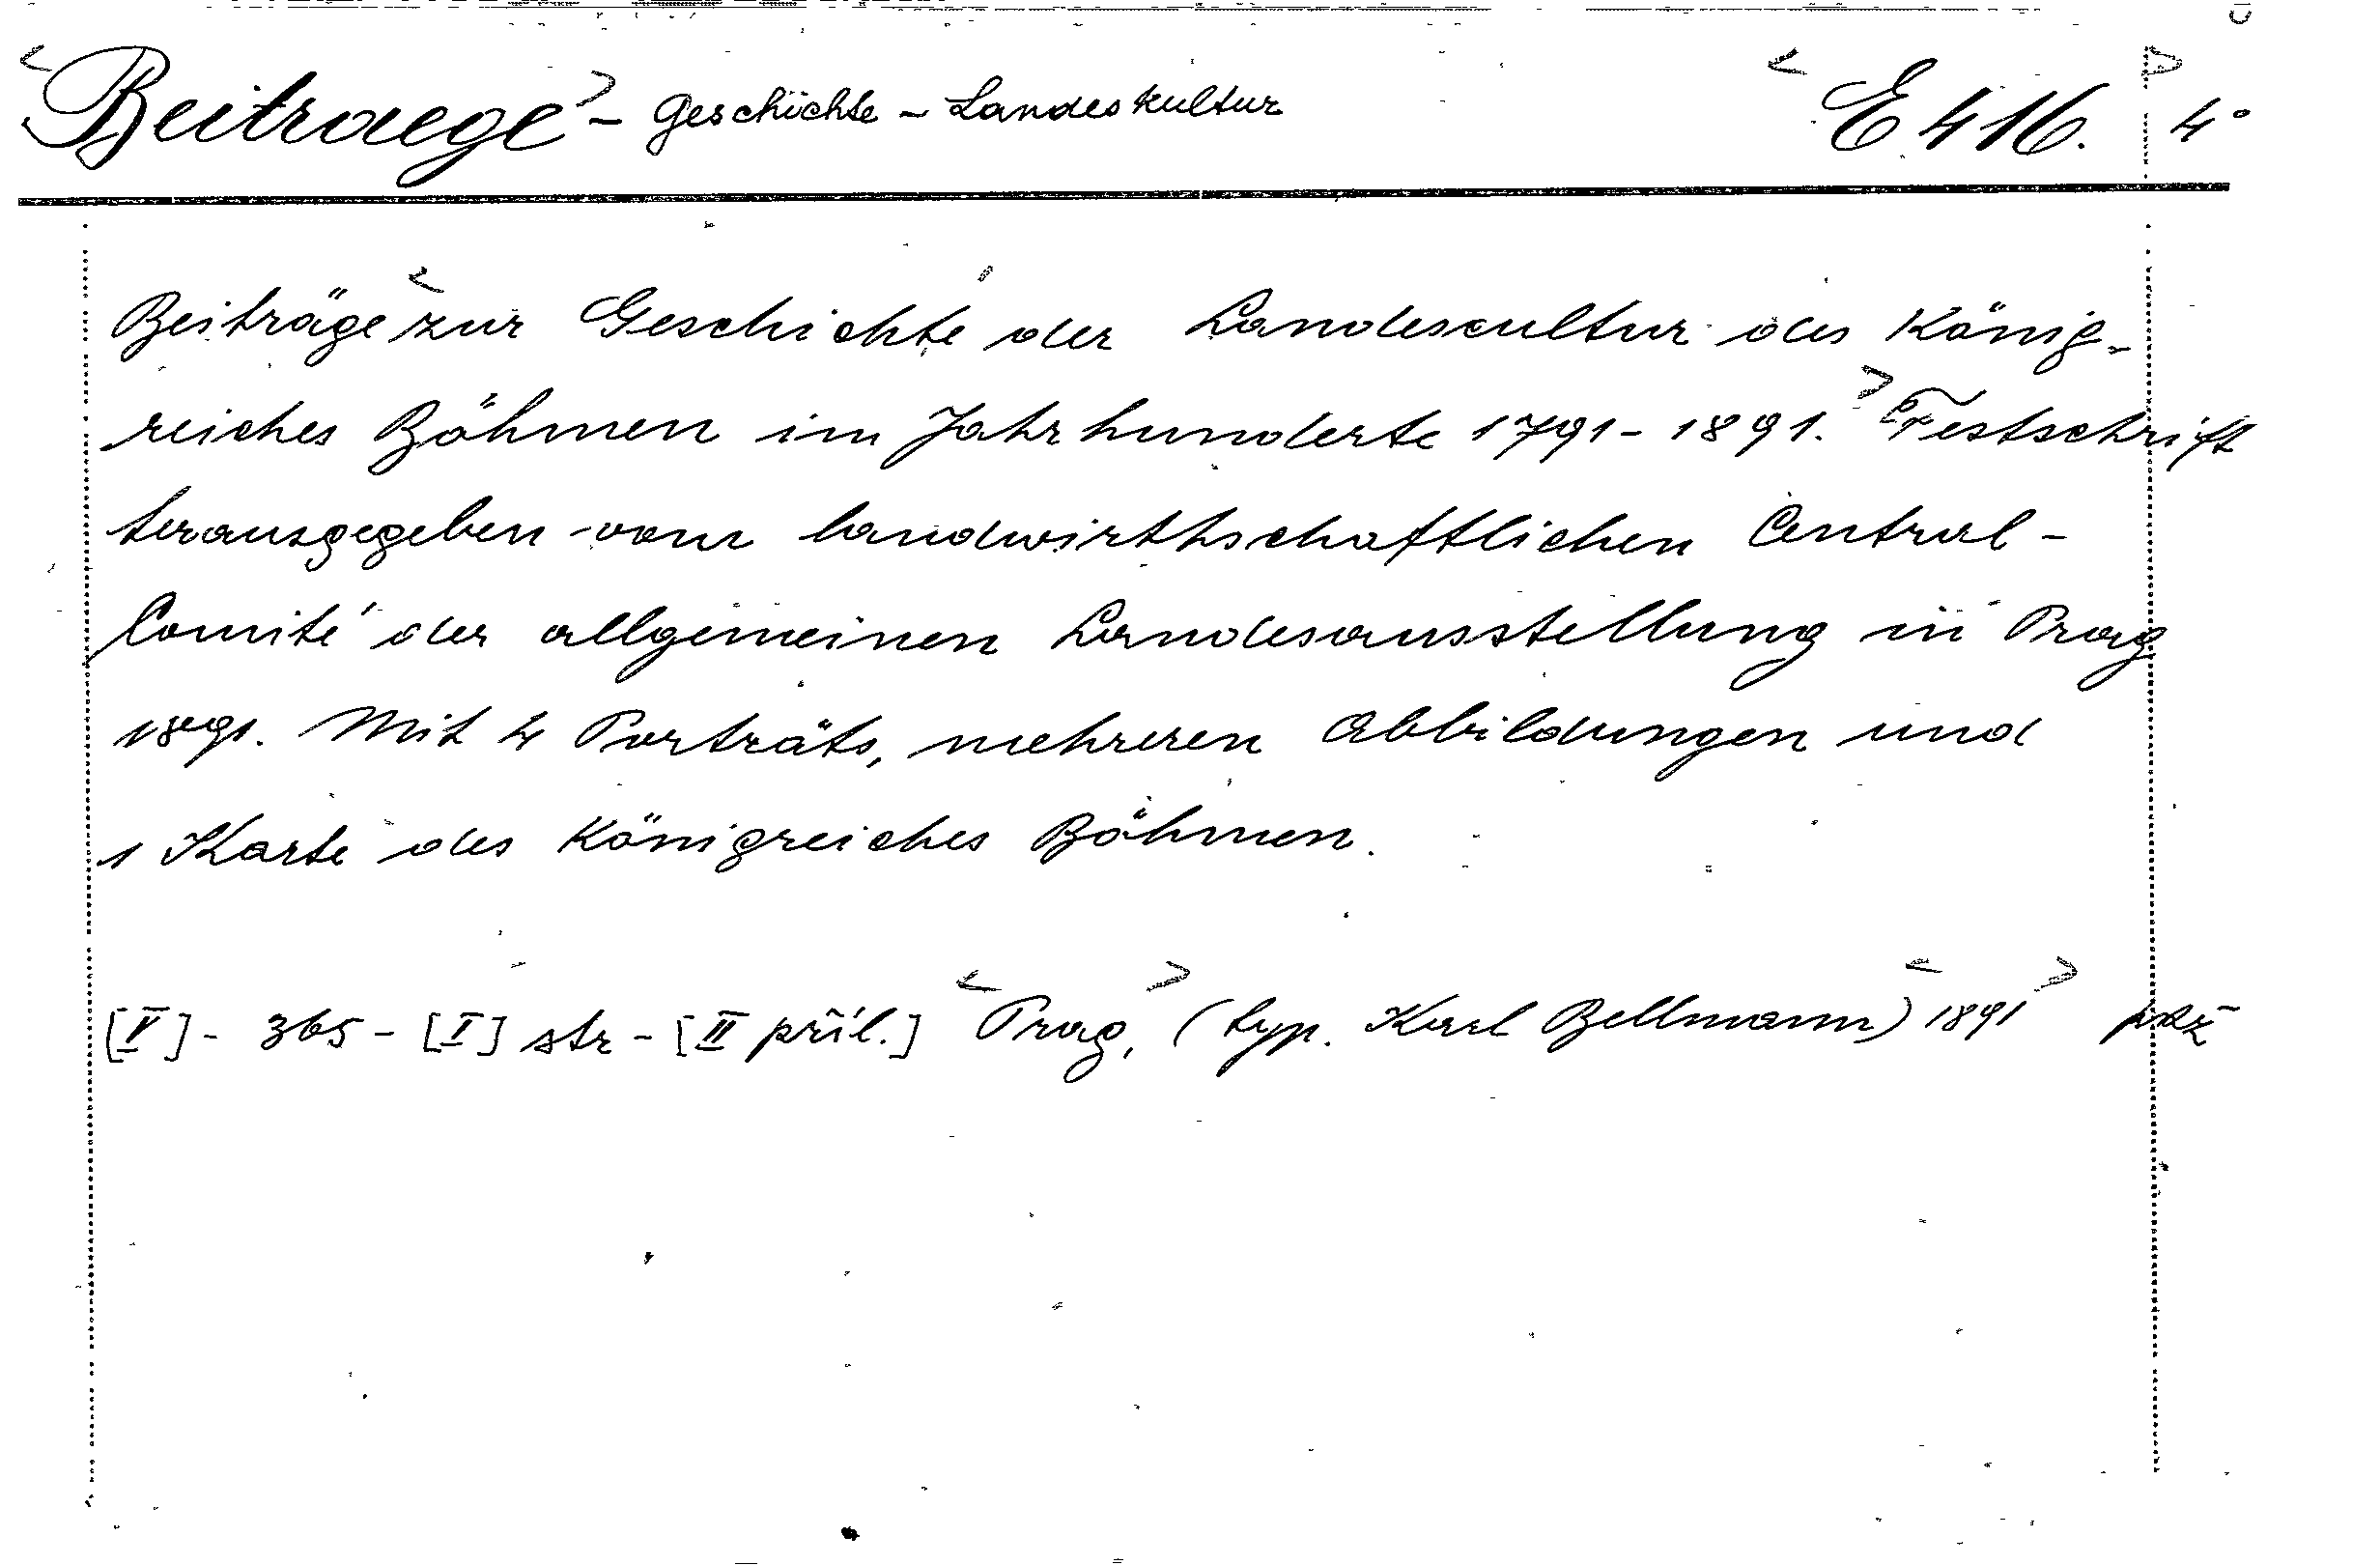 Beitraege - Geschichte - Landeskultur E 416. 4°
Beiträge zur Geschichte der Landescultur des König-
reiches Böhmen im Jahrhunderte 1791-1891. Festschrift
herausgegeben vom landwirthschaftlichen Central-
Comité der allgemeinen Landesausstellung in Prag
1891. Mit 4 Porträts, mehreren Abbildungen und
1 Karte des Königreiches Böhmen.
[V] - 365 - [I] str - [II příl.] Prag, (typ. Karl Bellmann) 1891